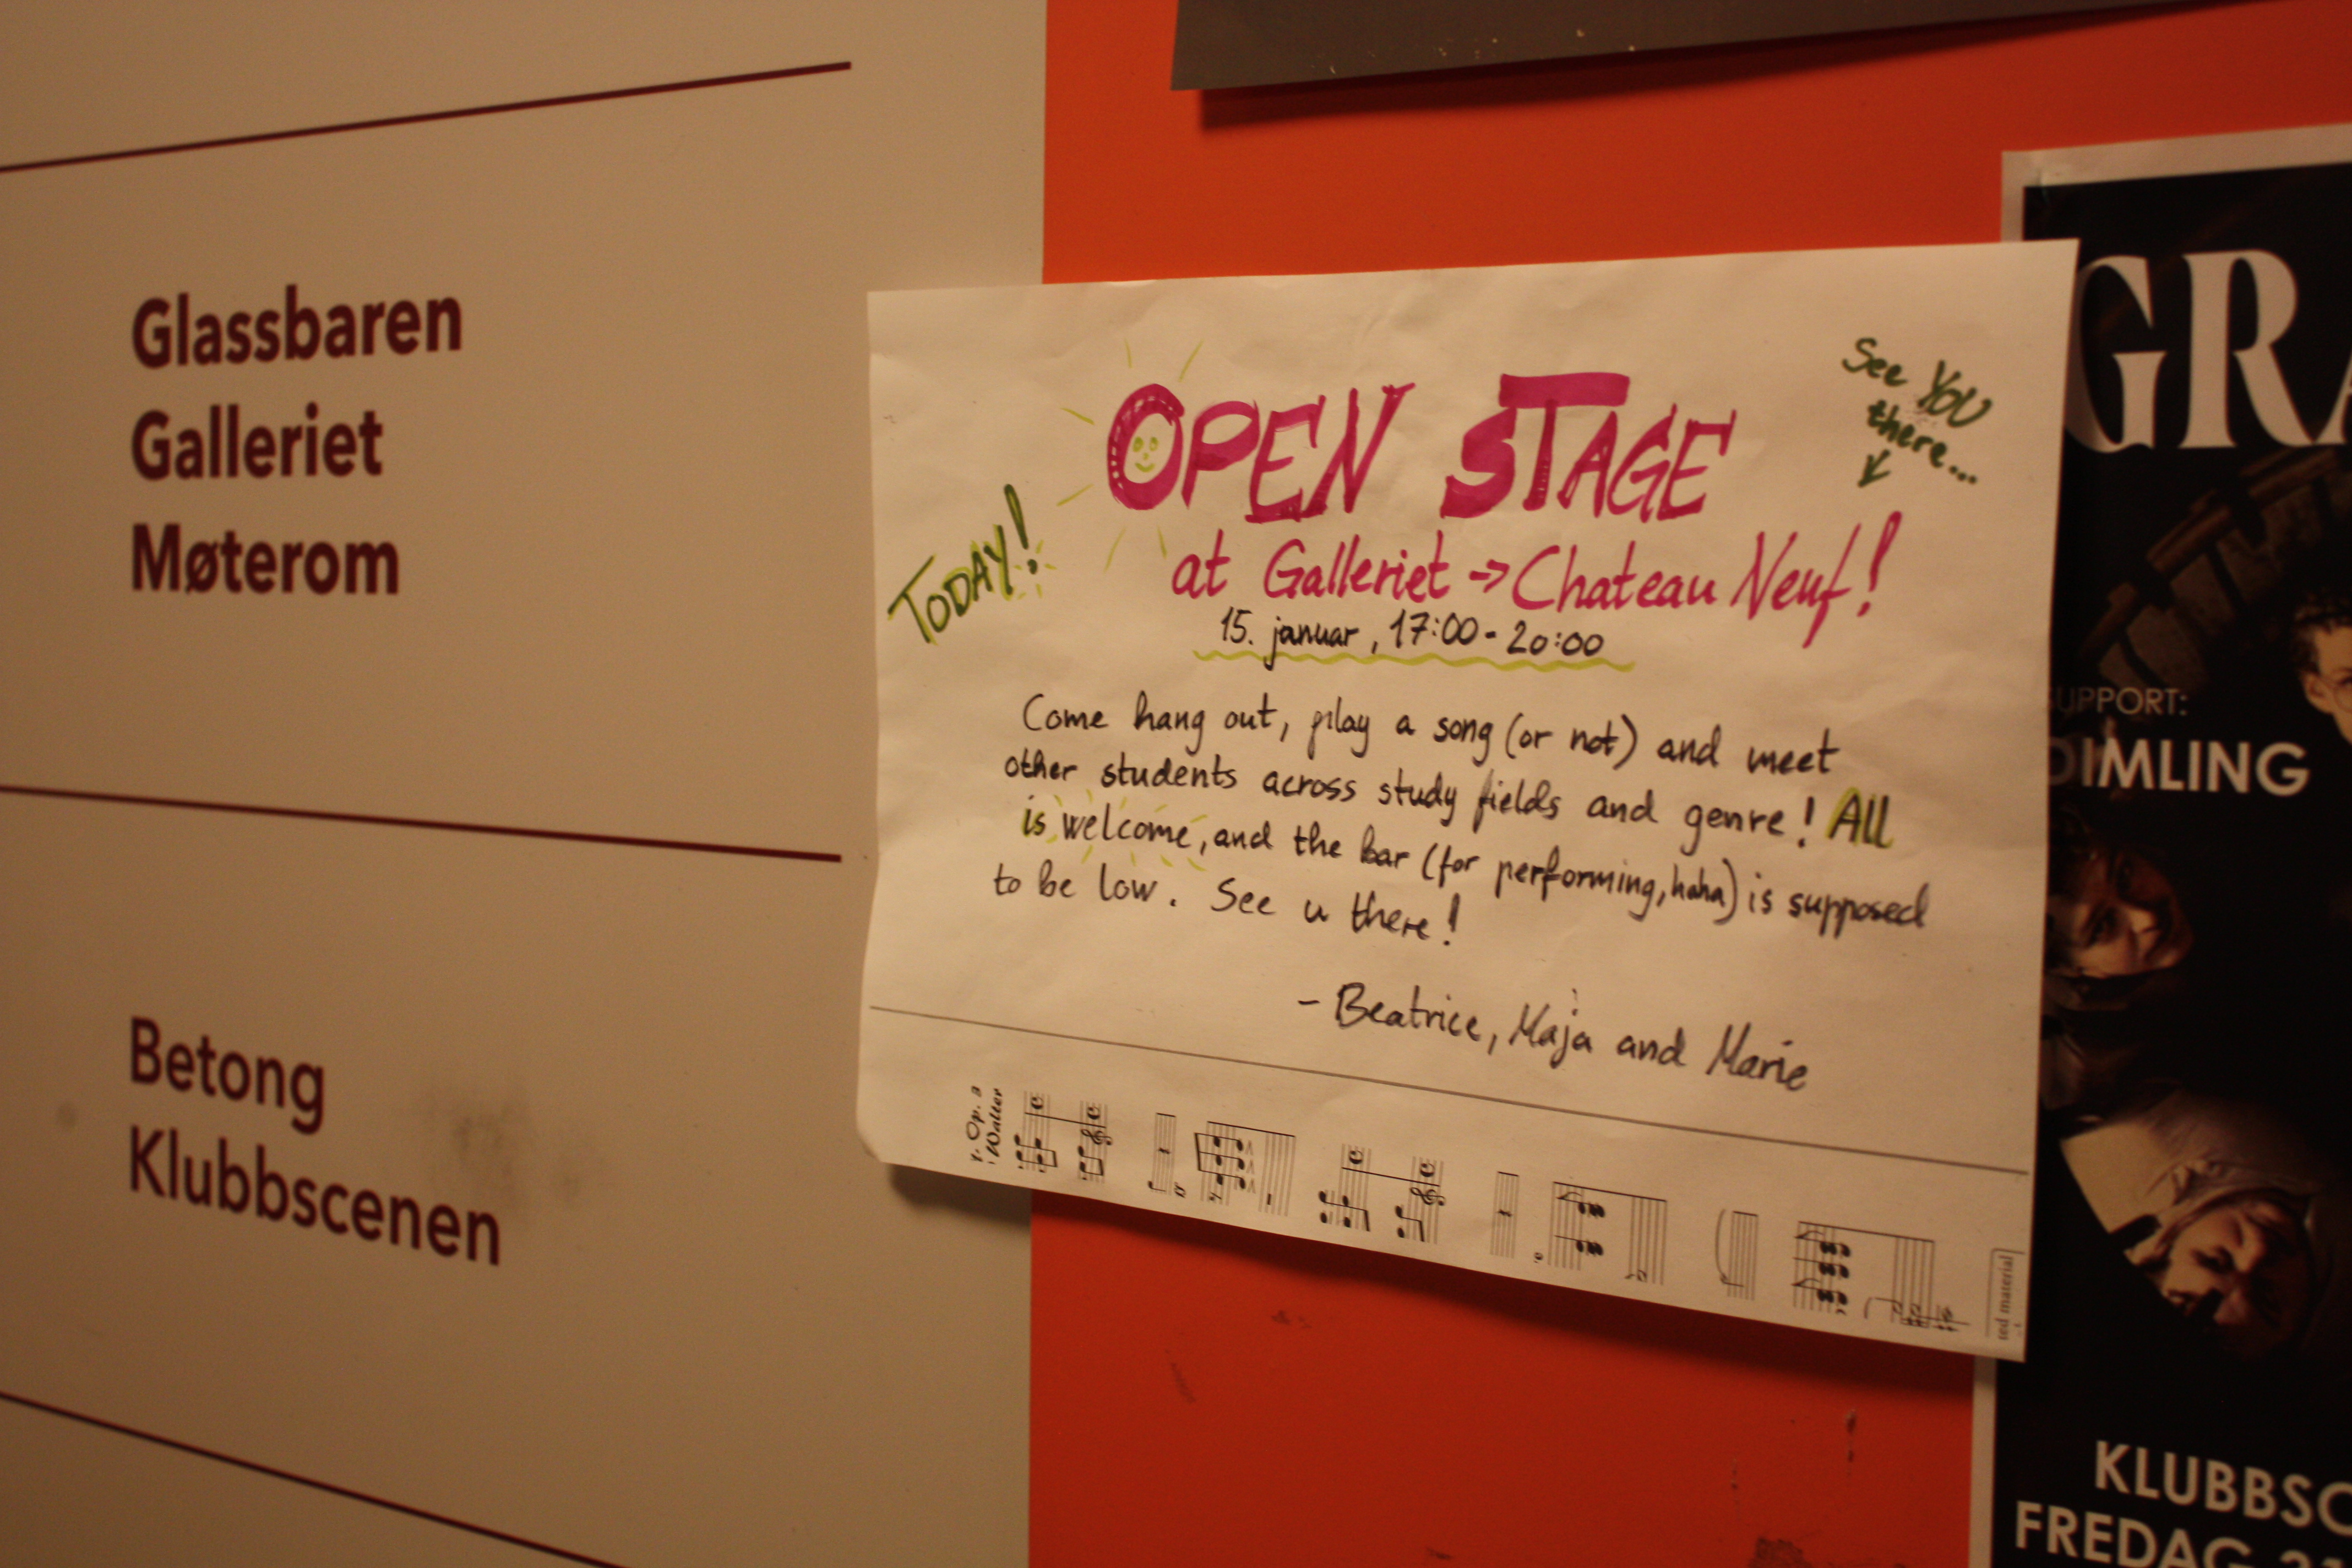 Glassbaren
Galleriet
Møterom
Betong
Klubbscenen
OPEN STAGE
See YOU
there...
TODAY!
at Galleriet -> Chateau Neuf!
15. januar, 17:00 - 20:00
Come hang out, play a song (or not) and meet
other students across study fields and genre! All
is welcome, and the bar (for performing, haha) is supposed
to be low. See u there!
- Beatrice, Maja and Marie
Op. 3
Walter
ted material
GRA
SUPPORT:
DIMLING
KLUBBSC
FREDAG